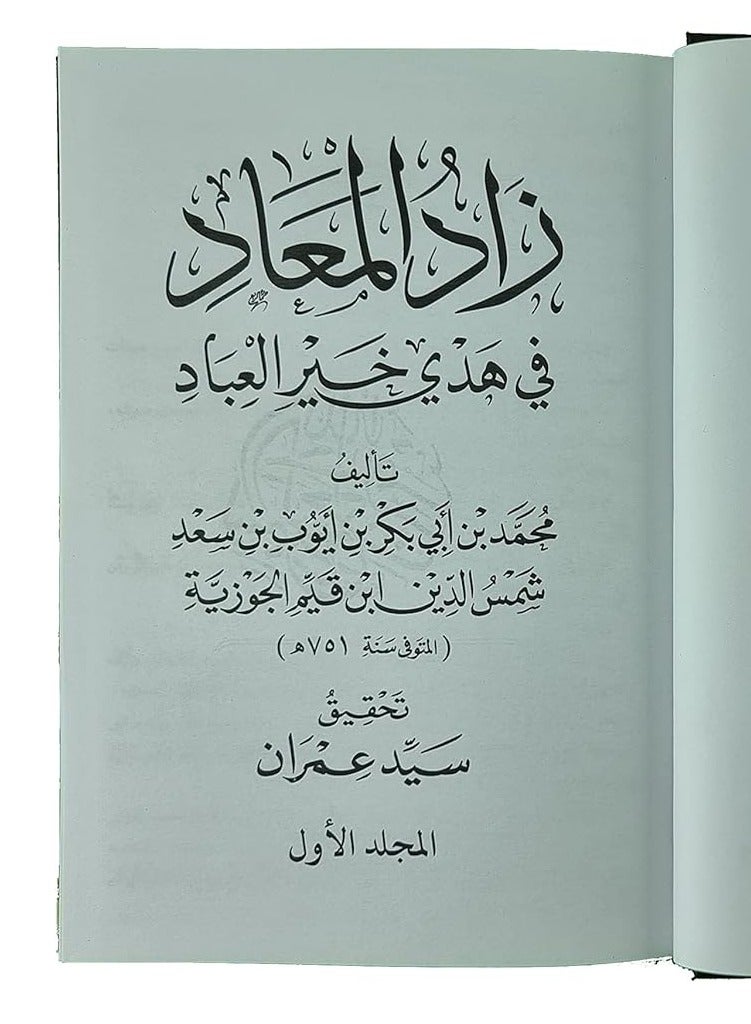 زَادُ المَعَادِ
في هَدْيِ خَيْرِ العِبَادِ
تَأليفُ
مُحَمَّد بْن أَبِي بَكْرِ بْنِ أَيُّوب بْنِ سَعَد
شَمْسُ الدِّيْن ابْن قَيِّمِ الجَوْزِيَّةِ
( المتوفى سَنَة ٧٥١ هـ )
تَحْقِيقُ
سَيِّد عِمْرَان
المجلد الأول